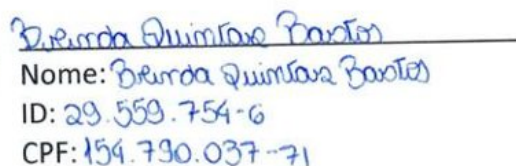 Brenda Quintara Bastos
Nome: Brenda Quintara Bastos
ID: 29.559.754-6
CPF: 154.790.037-71